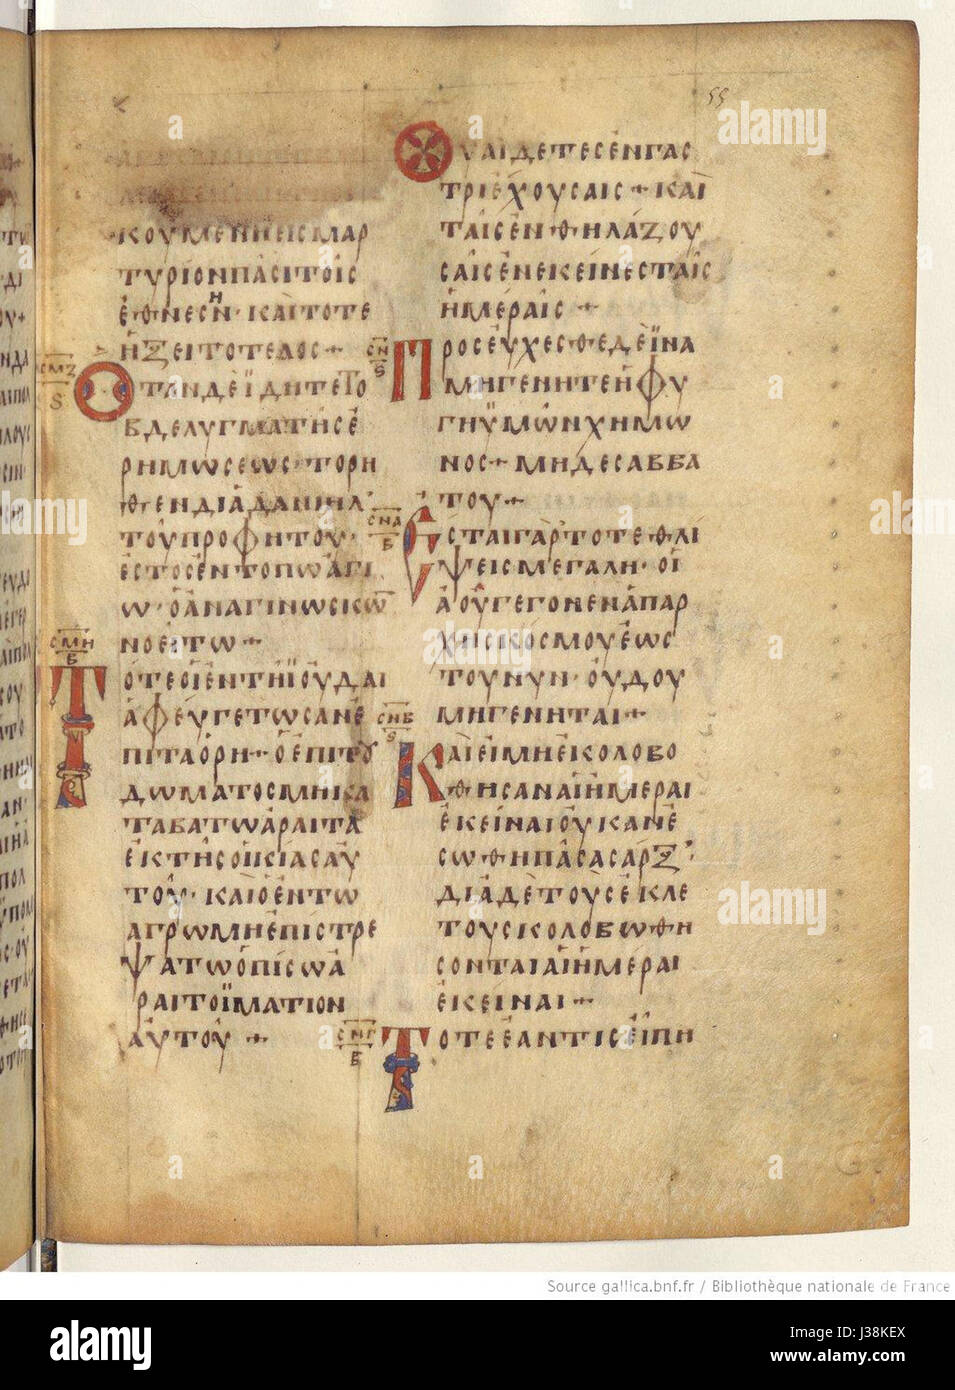 55
κουμενηεισμαρ
τύριονπᾶσιτοῖς
ἔθνεσην· καὶτοτε
ἥξειτοτελος+
σμζ
ς
Ὅτανδὲϊδητετο
βδελυγματησἐ
ρημωσεως· τορη
θενδιὰδανιηλ
τοῦπροφητου·
ἑστοσεντοπωἁγι
ω· ὁἀναγινωσκω
νοείτω+
σμη
β
Τότεοἱεντηϊουδαι
αφευγετωσανἐ
πιταόρη+ ὁἐπιτου
δωματοσμηκα
ταβατωἆραιτα
ἐκτῆσοἰκίασαὐ
τοῦ· καὶὁἐντω
αγρωμηἐπιστρε
ψατωὀπίσωἆ
ραιτοϊματιον
αὐτοῦ+
Ουαιδετεσἐνγασ
τριἐχουσαισ+ καὶ
ταῖσἐνθηλάζου
σαισἐνεκείνεσταισ
ἡμέραισ+
σν
ς
Προσεύχεσθεδεΐνα
μηγενητεηφυ
γηϋμῶνχημω
νοσ+ μηδεσαββα
του+
σνα
β
Εσταιγὰρτοτεθλι
ψεισμεγαλη· οἵ
αοὐγεγονεναπαρ
χησκοσμουἕωσ
τουνυν· ουδου
μηγενηται+
σνβ
ς
Καὶεἰμὴἐκολοβο
θησαναἱημεραι
ἐκείναιοὐκανἐ
σωθηπᾶσασαρξ
διὰδὲτοὺσἐκλε
τουσκολοβωθη
σονταιαἱημεραι
ἐκειναι+
σνγ
β
Τοτεἐάντισεἴπη
Source gallica.bnf.fr / Bibliothèque nationale de France
alamy
a
alamy stock photo
J38KEX
www.alamy.com